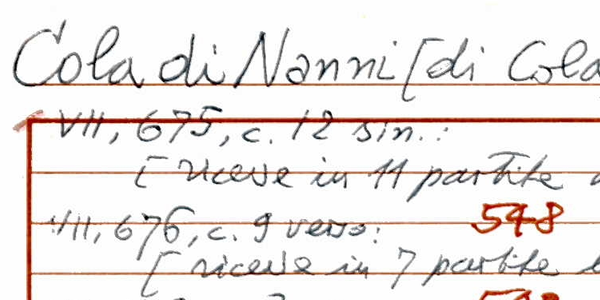 Cola di Nanni [di Cola
VII, 675, c. 12 sin.:
[riceve in 11 partite
VII, 676, c. 9 verso: 548
[riceve in 7 partite